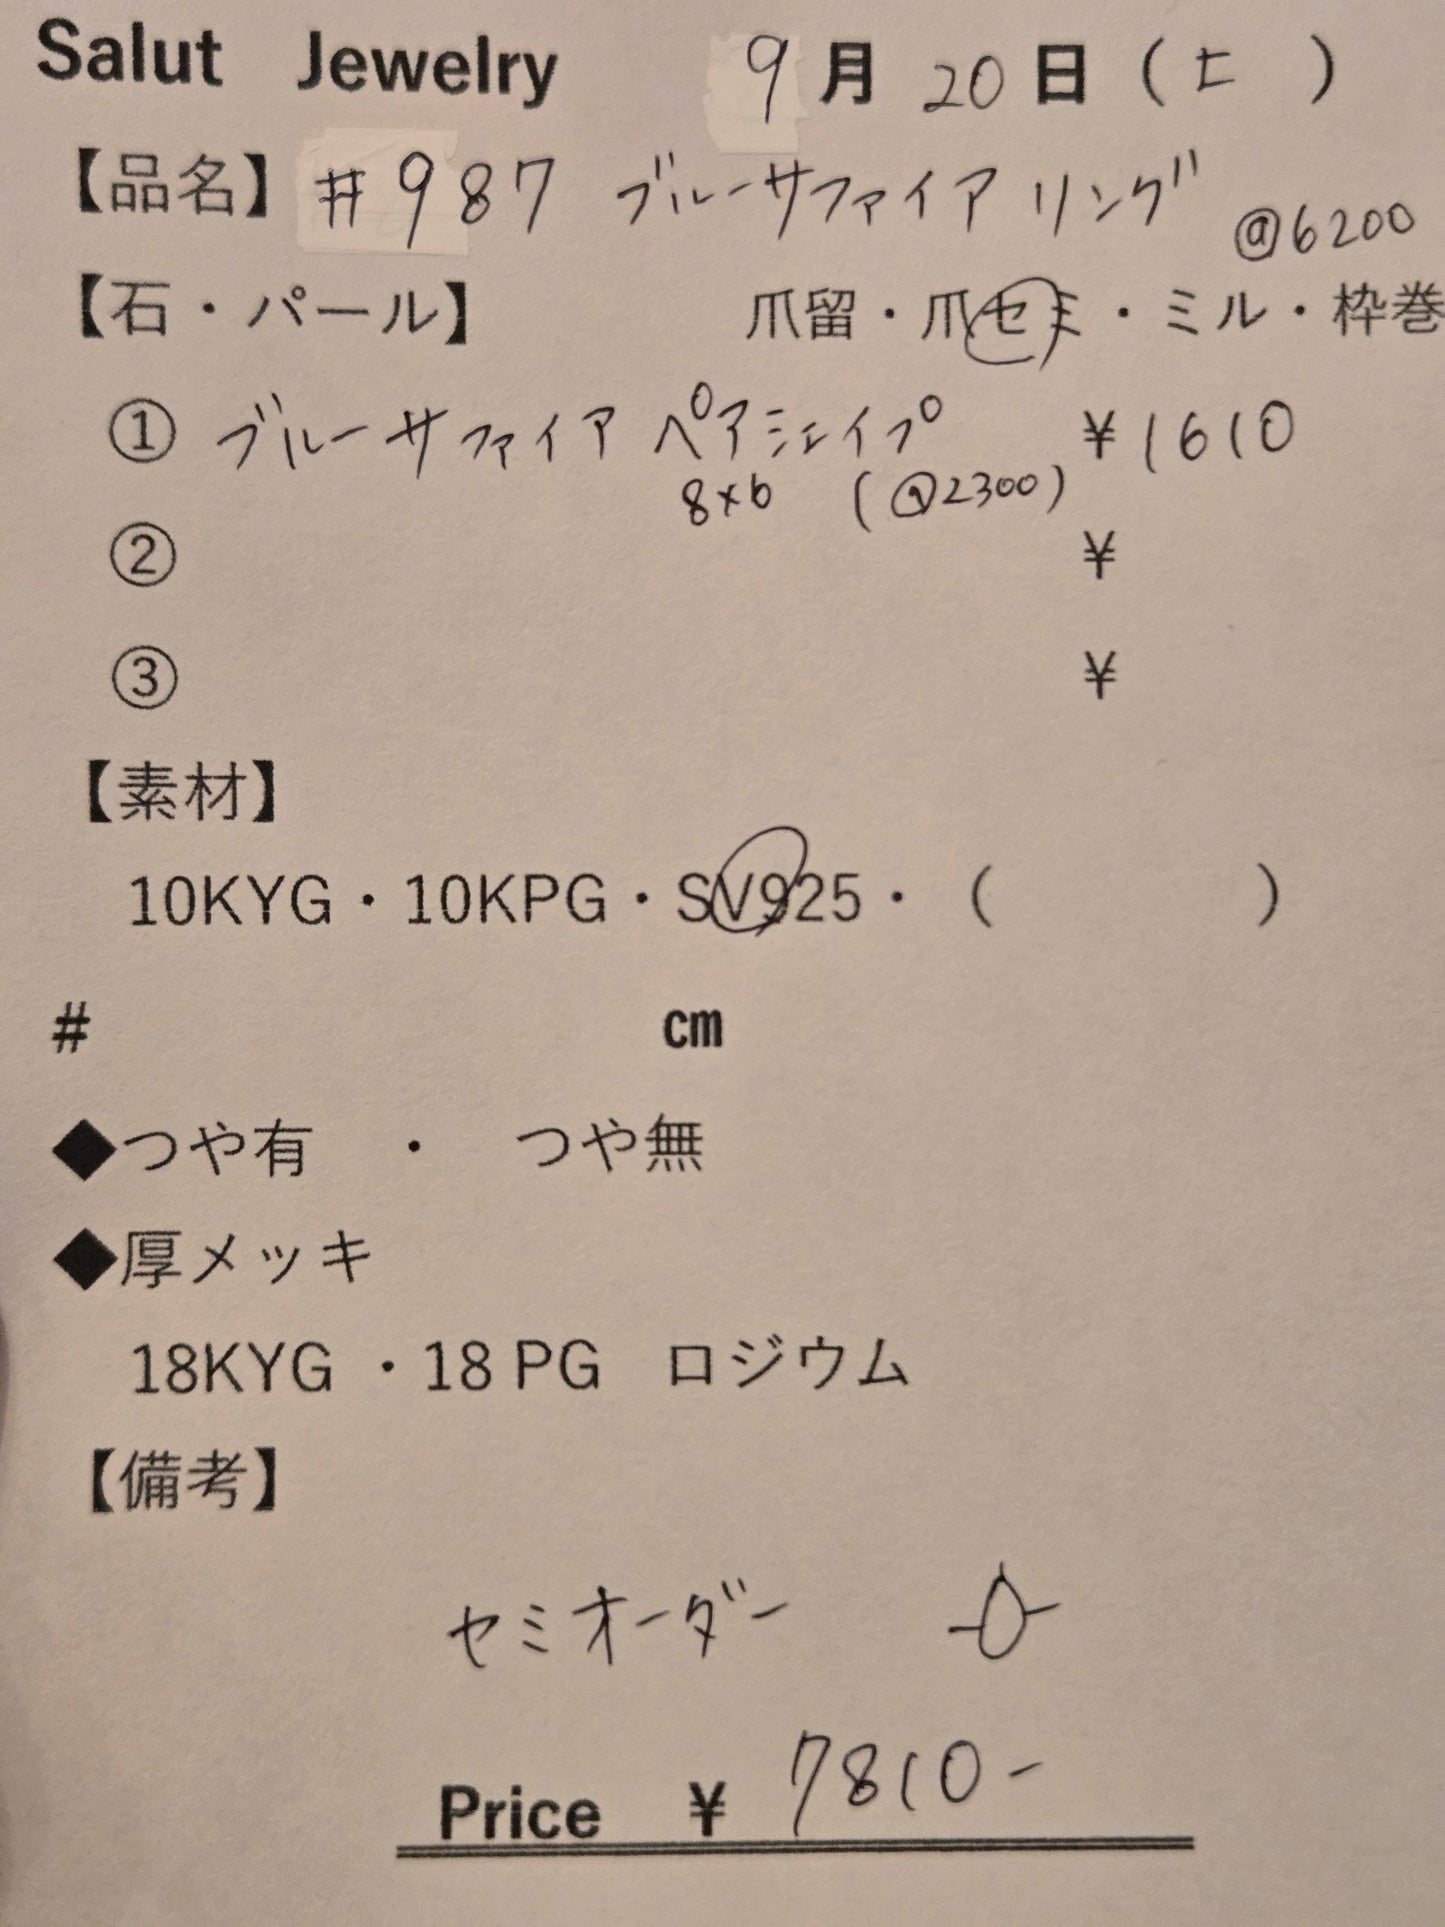 Salut Jewelry 9月20日(土)
【品名】#987 ブルーサファイア リング @6200
【石・パール】 爪留・爪セミ・ミル・枠巻
① ブルーサファイア ペアシェイプ ¥1610
8×6 (@2300)
② ¥
③ ¥
【素材】
10KYG・10KPG・SV925・( )
# cm
◆つや有 ・ つや無
◆厚メッキ
18KYG ・18 PG ロジウム
【備考】
セミオーダー
Price ¥ 7810-